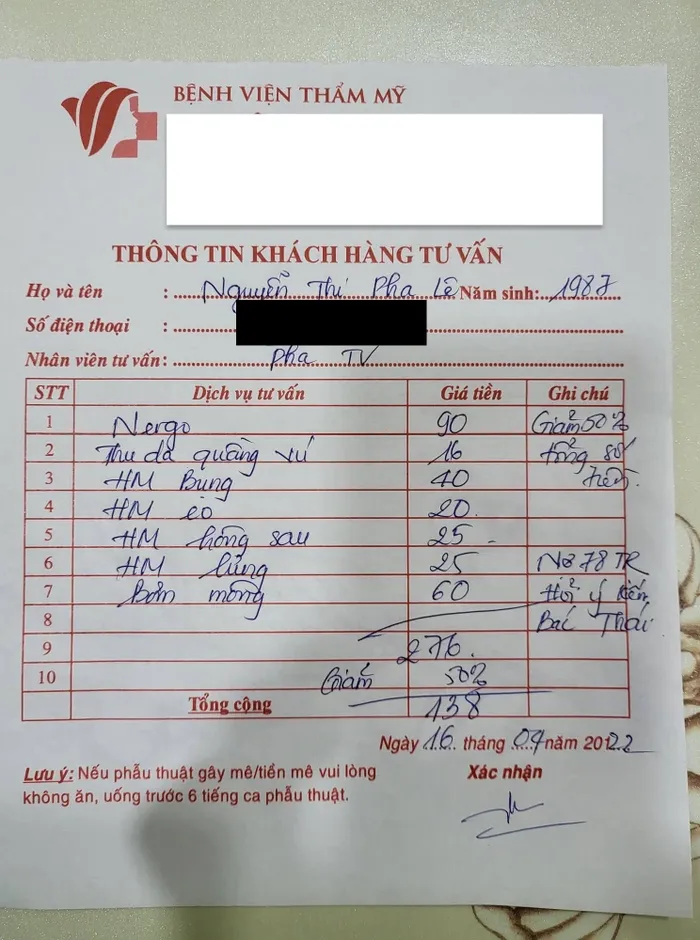 BỆNH VIỆN THẨM MỸ
THÔNG TIN KHÁCH HÀNG TƯ VẤN
Họ và tên : Nguyễn Thị Pha Lê Năm sinh: 1987
Số điện thoại :
Nhân viên tư vấn: Pha TV
STT Dịch vụ tư vấn Giá tiền Ghi chú
1 Nergo 90 Giảm 50%
2 Thu da quầng vú 16 tổng số
3 HM Bụng 40 tiền.
4 HM eo 20
5 HM hông sau 25
6 HM lưng 25 Nợ 78 TR
7 Bơm mông 60 Hỏi ý kiến
8 Bác Thái
9 276.
10 Giảm 50%
Tổng cộng 138
Ngày 16 tháng 04 năm 2022
Lưu ý: Nếu phẫu thuật gây mê/tiền mê vui lòng
không ăn, uống trước 6 tiếng ca phẫu thuật.
Xác nhận